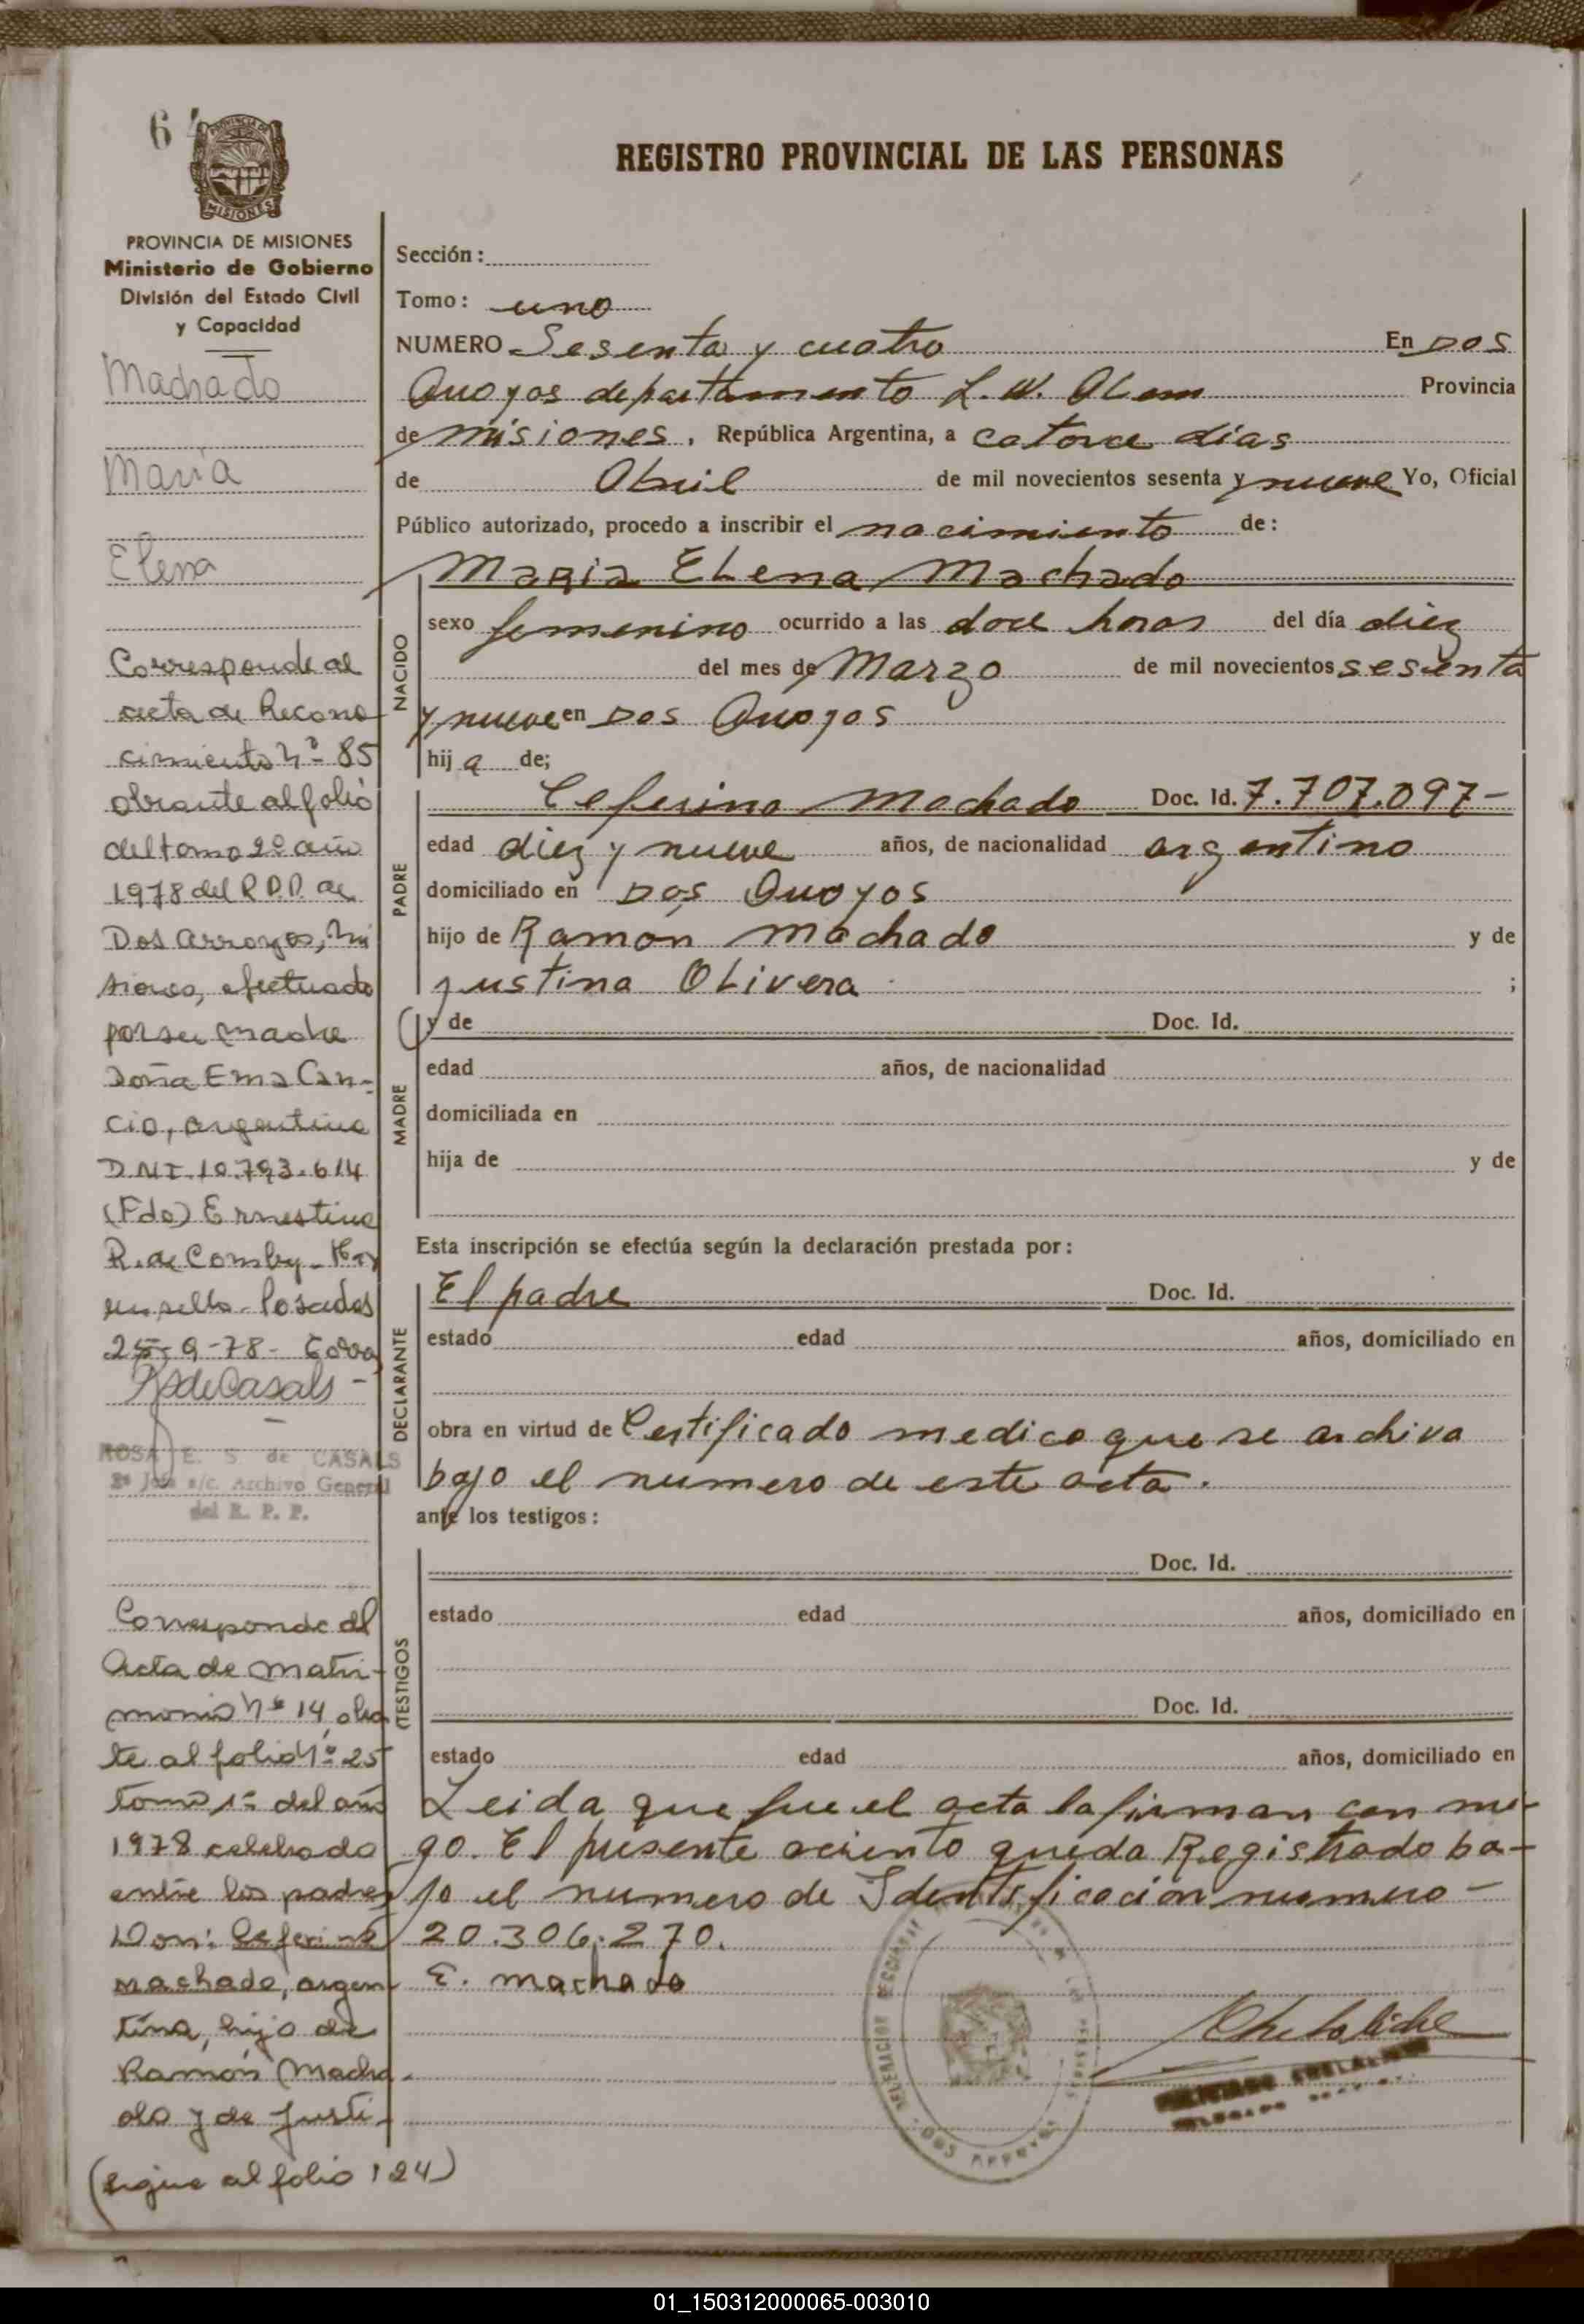 64
REGISTRO PROVINCIAL DE LAS PERSONAS
PROVINCIA DE MISIONES
MISIONES
PROVINCIA DE MISIONES
Ministerio de Gobierno
División del Estado Civil
y Capacidad
Machado
María
Elena
Corresponde al
acta de Recono
cimiento Nº 85
obrante al folio
del tomo 2º año
1978 del R.P.P. de
Dos Arroyos, Mi
siones, efectuado
por su madre
Doña Ema Can-
cio, argentina
D.N.I. 10.793.614
(Fdo) Ernestina
R. de Comby - Hay
un sello - Posadas
25-9-78-
RdeCasals -
ROSA E. S. de CASALS
2º Jefe a/c. Archivo General
del R. P. P.
Corresponde al
Acta de matri-
monio Nº 14, obra
te al folio Nº 25
tomo 1º del año
1978 celebrado
entre los padres
Don: Ceferino
Machado, argen
tino, hijo de
Ramón Macha
do y de Justi-
(sigue al folio 124)
Sección:
Tomo: uno
NUMERO Sesenta y cuatro En Dos
Arroyos departamento L. N. Alem Provincia
de misiones. República Argentina, a catorce días
de Abril de mil novecientos sesenta y nueve Yo, Oficial
Público autorizado, procedo a inscribir el nacimiento de:
Maria Elena Machado
NACIDO
sexo femenino ocurrido a las doce horas del día diez
del mes de Marzo de mil novecientos sesenta
y nueve en Dos Arroyos
hija de;
PADRE
Ceferino Machado Doc. Id. 7.707.097-
edad diez y nueve años, de nacionalidad argentino
domiciliado en Dos Arroyos
hijo de Ramón Machado y de
Justina Olivera ;
MADRE
y de Doc. Id.
edad años, de nacionalidad
domiciliada en
hija de y de
Esta inscripción se efectúa según la declaración prestada por:
DECLARANTE
El padre Doc. Id.
estado edad años, domiciliado en
obra en virtud de Certificado medico que se archiva
bajo el numero de este acta.
ante los testigos:
TESTIGOS
Doc. Id.
estado edad años, domiciliado en
Doc. Id.
estado edad años, domiciliado en
Leida que fue el acta la firman con mi-
go. El presente aciento queda Registrado ba-
jo el numero de Identificacion numero-
20.306.270.
C. machado
DOS ARROYOS
01_150312000065-003010